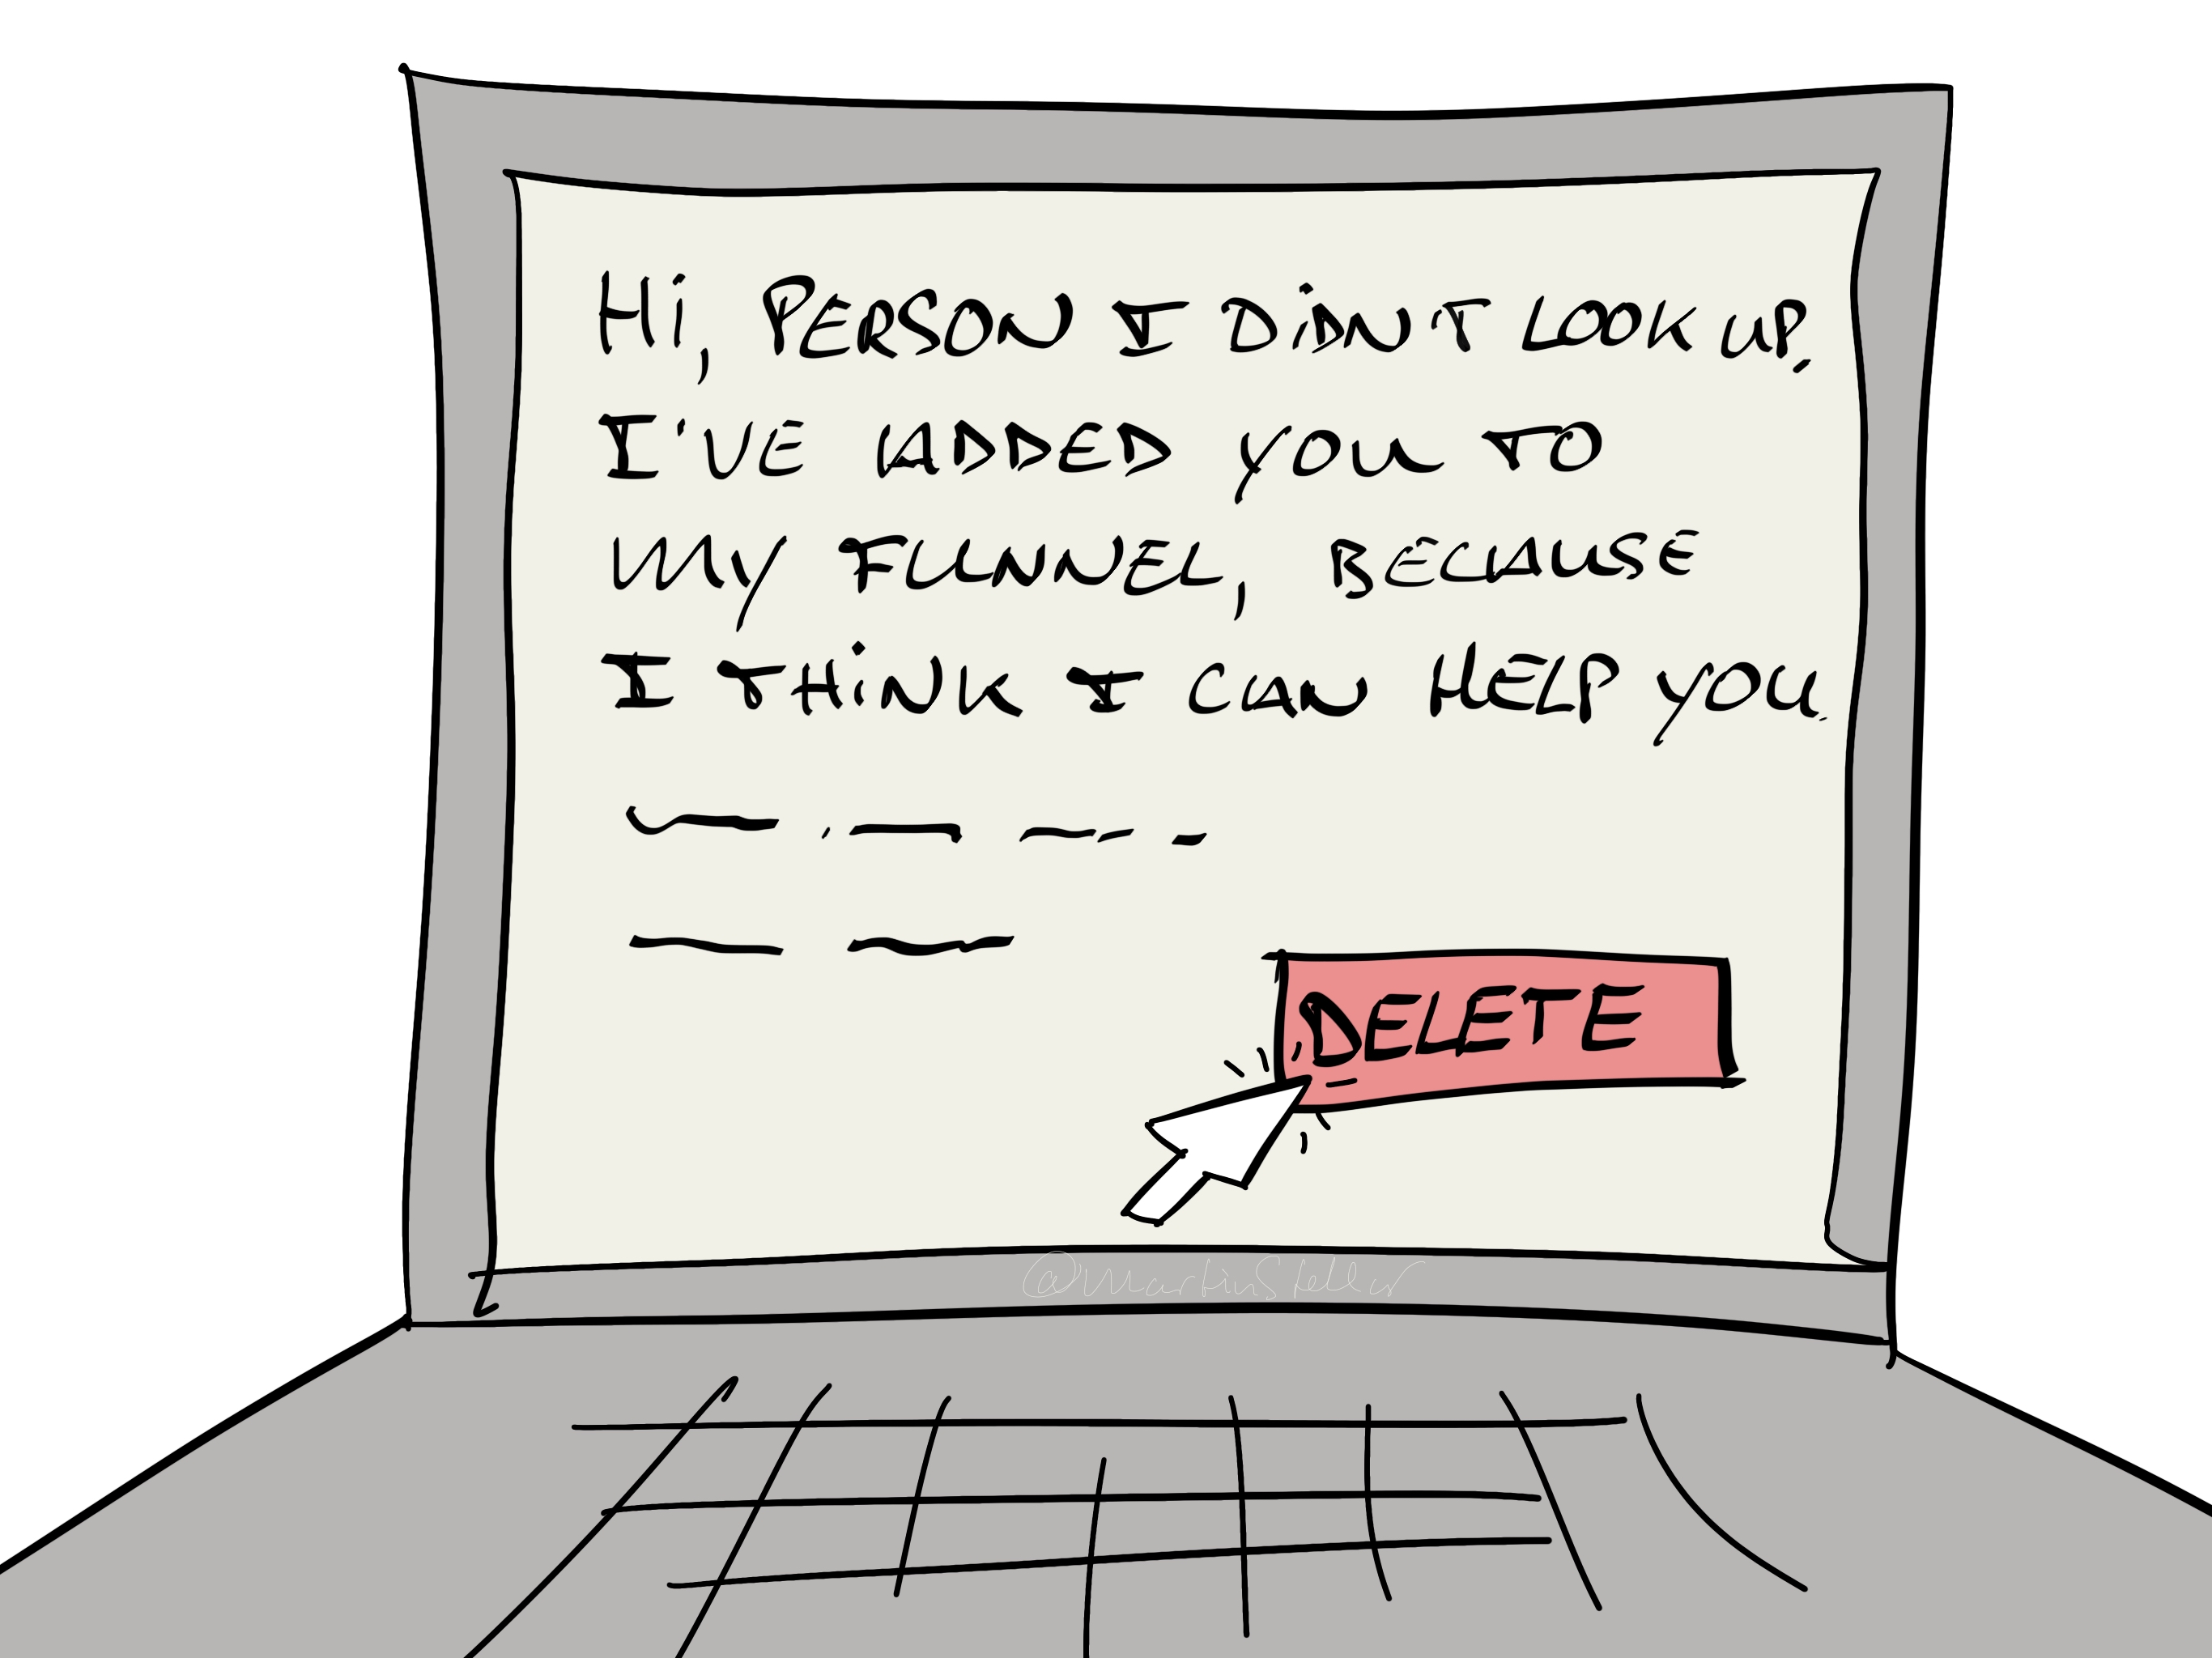 Hi, PERSON I DiDN'T LOOK UP.
I'VE ADDED YOU TO
MY FUNNEL, BECAUSE
I THiNK I CAN HELP YOU.
DELETE
@martinstellar